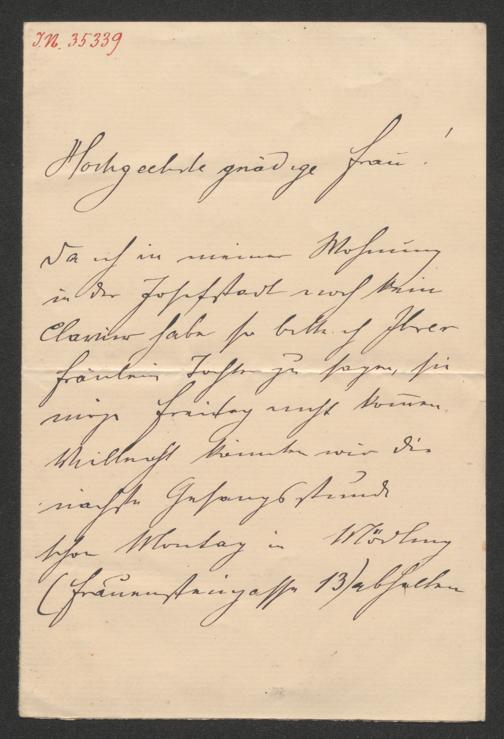 I.N. 35339
Hochgeehrte gnädige Frau!
Da ich in meiner Wohnung
in der Josefstadt noch kein
Clavier habe so bitte ich Ihrer
Fräulein Tochter zu sagen, sie
möge Freitag nicht kom̄en.
Vielleicht könnten wir die
nächste Gesangsstunde
schon Montag in Mödling
(Frauensteingasse 13) abhalten